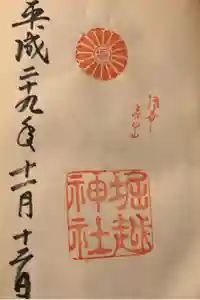 堀越
神社
平成二十九年十一月十三日